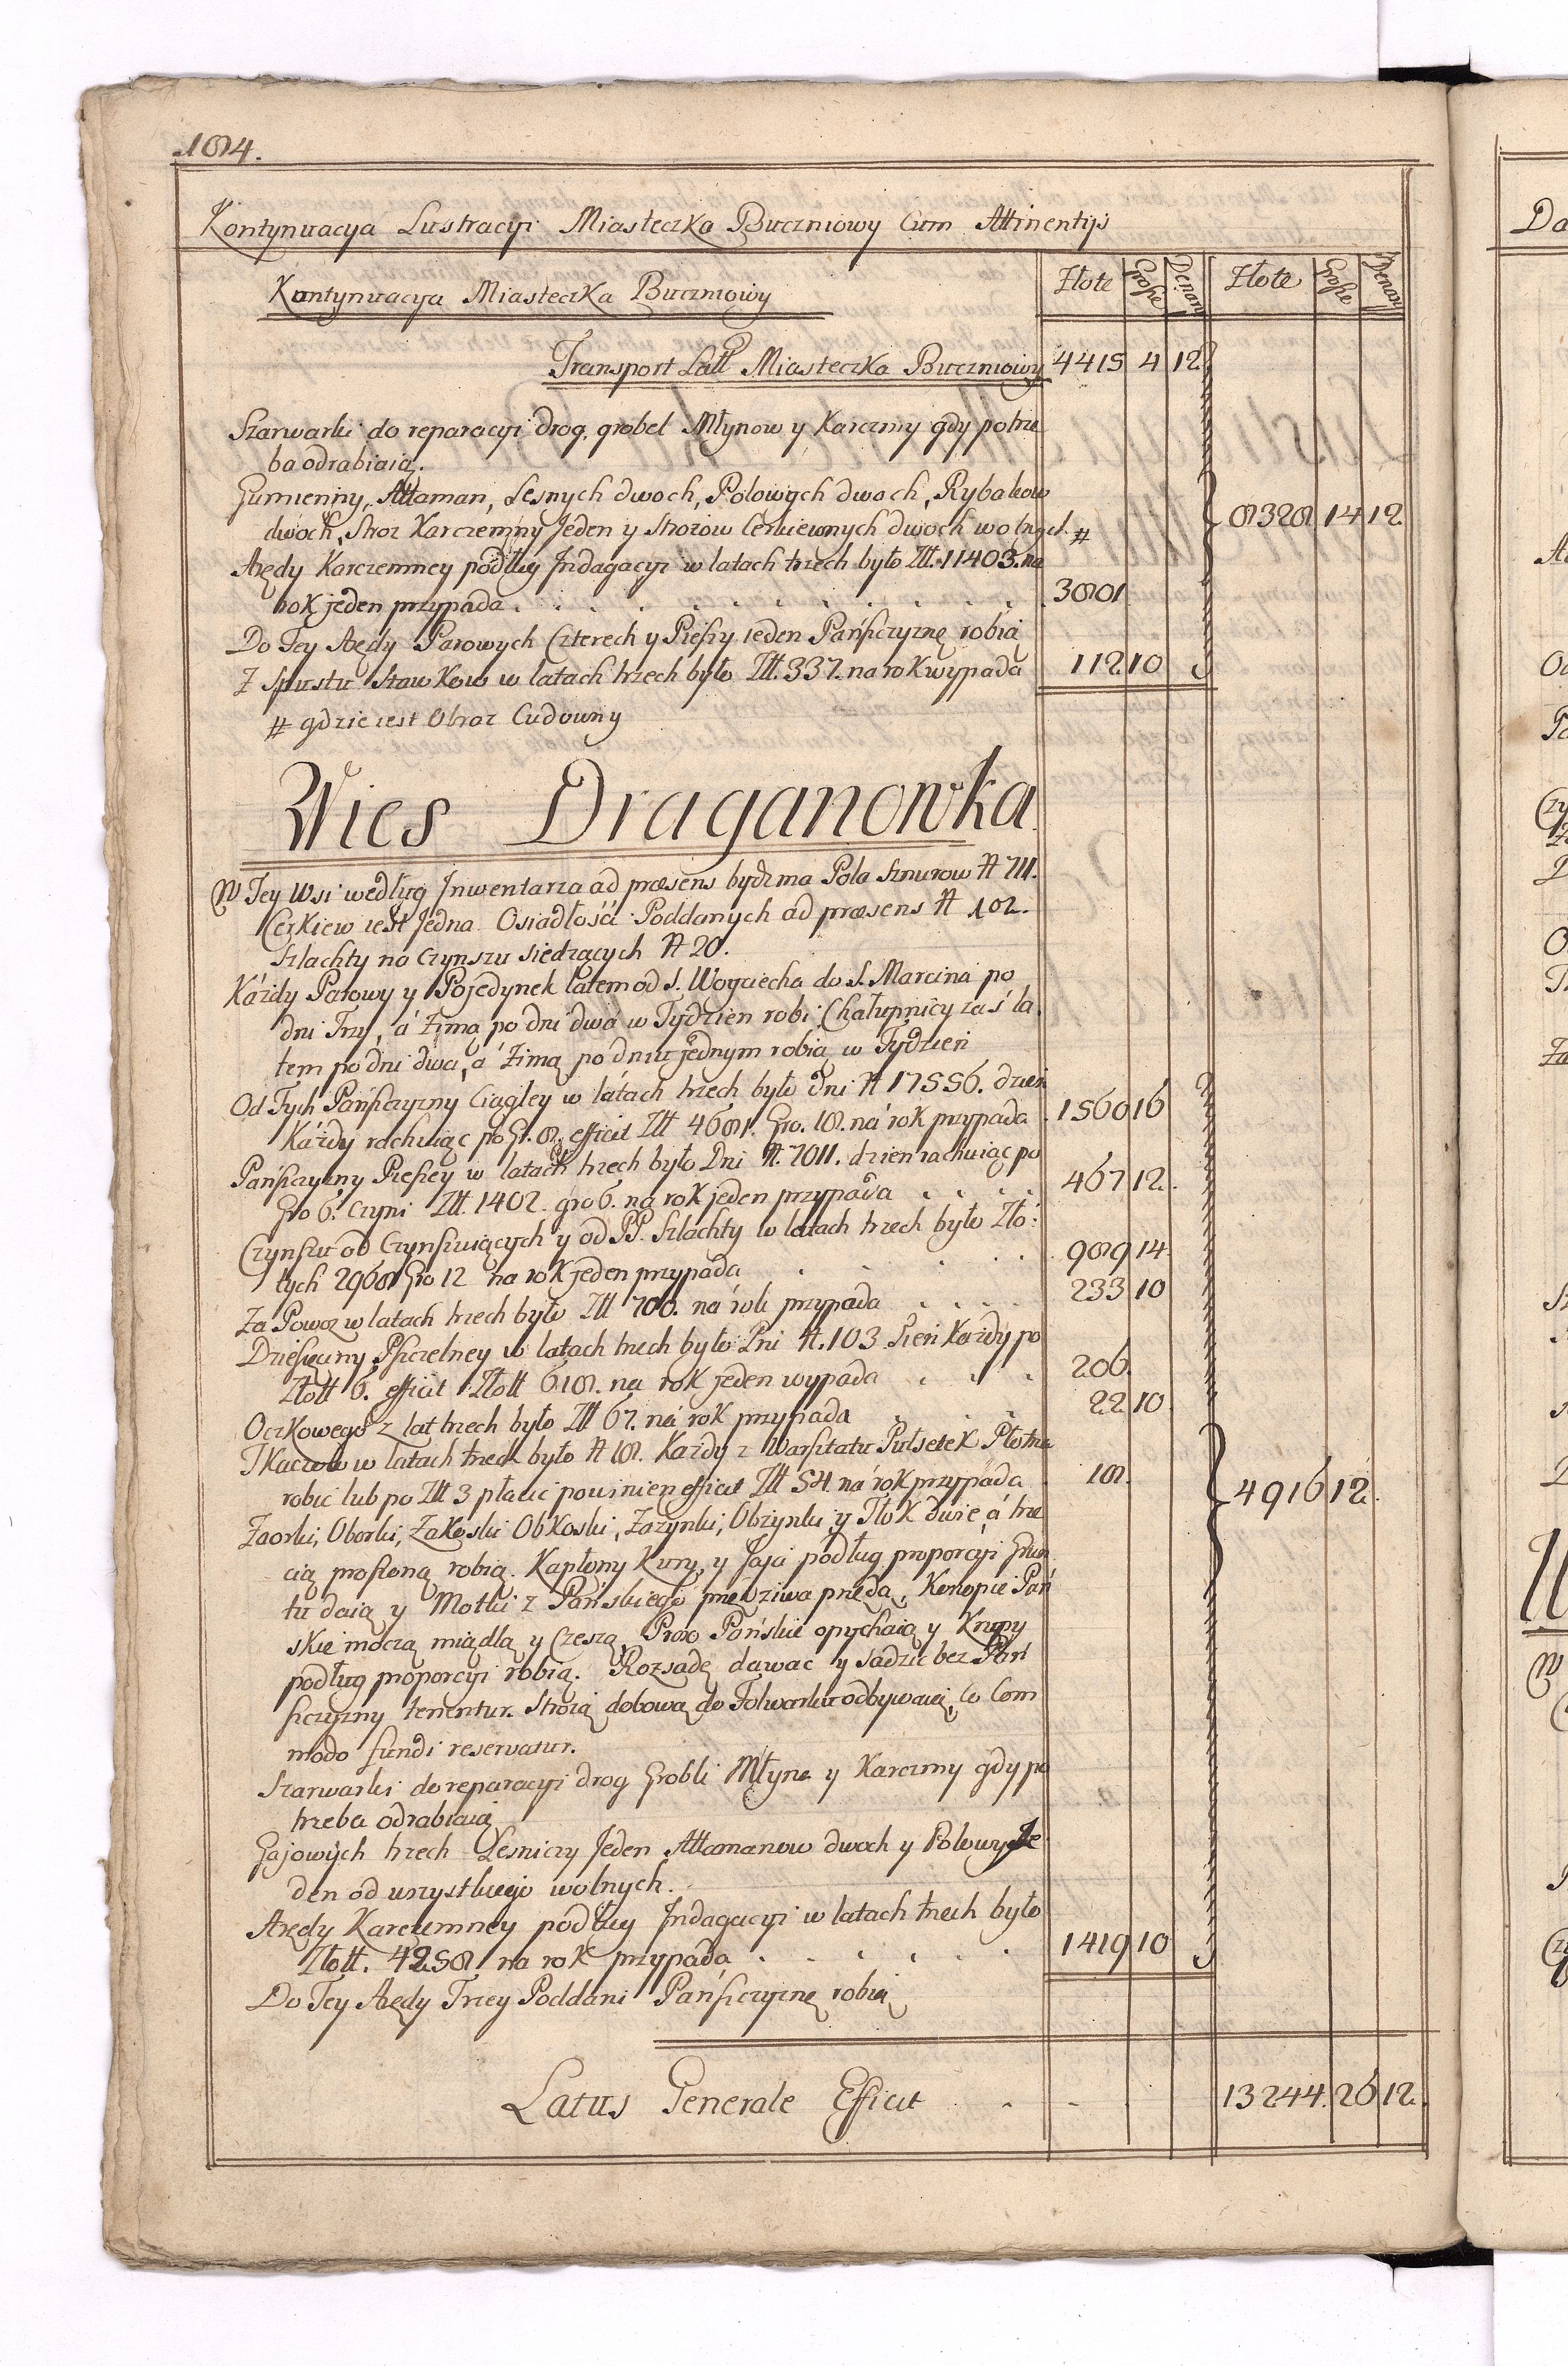 184.
Kontynuacya Lustracyi Miasteczka Buczniowy Cum Attinentijs
Kontynuacya Miasteczka Buczniowy
Złote Grosze Denary Złote Grosze Denary
Transport Latt Miasteczka Buczniowy 4415 4 12
Szarwarki do reparacyi drog, grobel Młynow y Karczmy gdy potrze
ba odrabiaią.
Gumienny, Attaman, Lesnych dwoch, Polowych dwoch, Rybakow
dwoch, Stroz Karczemny Jeden y Strozow Cerkiewnych dwoch wolnych. # 8328 14 12
Arędy Karczemney podług Indagacyi w latach trzech było Złł. 11403. na
rok jeden przypada . . . . . . 3801
Do Tey Arędy Parowych Czterech y Pieszy ieden Pańszczyznę robią
Z Spustu Stawkow w latach trzech było Złł. 337. na rok wypada 112 10
# gdzie iest Obraz Cudowny
Wies Draganowka
W Tey Wsi według Inwentarza ad præsens bydz ma Pola sznurow N 711.
Cerkiew iest Jedna. Osiadłość Poddanych ad præsens N 102.
Szlachty na czynszu siedzących N 20.
Każdy Parowy y Pojedynek latem od S. Woyciecha do S. Marcina po
dni Trzy, á Zimą po dni dwa w Tydzien robi, Chałupnicy zaś la
tem po dni dwa, á Zimą po dniu jednym robią w Tydzień
Od Tych Pańszczyzny Ciągley w latach trzech było dni N 17556. dzień
Każdy rachuiąc po Gr. 8. efficit Złł 4681. Gro. 18. ná rok przypada . 1560 16
Pańszczyzny Pieszey w latach trzech było Dni N. 7011. dzien rachuiąc po
Gro 6. czyni Złł. 1402. gro 6. na rok jeden przypada . . . . 467 12.
Czynszu od Czynszuiących y od PP. Szlachty w latach trzech było Zło:
tych 2968 Gro 12 na rok jeden przypada . . . . 989 14
Za Powoz w latach trzech było Złł 700. ná rok przypada . . . . 233 10
Dziesięciny Pszczelney w latach trzech było Pni N. 103 Pień Każdy po
Złott 6. efficit Złott 618. na rok jeden wypada . . . 206.
Oczkowego z lat trzech było Złł 67. ná rok przypada . . . 22 10
Tkaczow w latach trzech było N 18. Każdy z Warsztatu Pułsetek Płotna
robic lub po Złł 3 płacic powinien efficit Złł 54 ná rok przypada 18. 4916 12.
Zaorki, Oborki, Zakoski Obkoski, Zazynki, Obzynki y Tłok dwie, á trze
cią proszoną robią. Kapłony Kury, y Jaja podług proporcyi Grun
tu daią y Motki z Pańskiego prędziwa przędą, Konopie Pań
skie moczą miądlą y Czeszą, Proso Pańskie opychaią y Krupy
podług proporcyi robią. Rozsadę dawac y sadzic bez Pań
szczyzny tenentur. Strozą dobową do Folwarku odbywaią, Co Com
modo fundi reservatur.
Szarwarki do reparacyi drog Grobli Młyna y Karczmy gdy po
trzeba odrabiaią
Gajowych trzech Lesniczy Jeden Attamanow dwoch y Polowy Je
den od wszystkiego wolnych.
Arędy Karczemney podług Indagacyi w latach trzech było
Złott. 4258 na rok przypada . . . . . . 1419 10
Do Tey Arędy Trzey Poddani Pańszczyznę robią
Latus Generale Efficit . . 13244. 26 12.